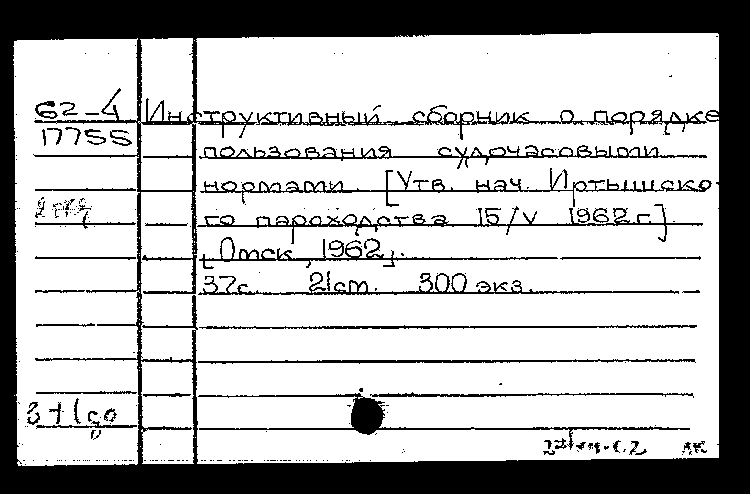 62-4 Инструктивный сборник о порядке
17755 пользования судочасовыми
нормами. [Утв. нач. Иртышско-
го пароходства 15/V 1962 г.]
[Омск, 1962].
37с. 21см. 300 экз.